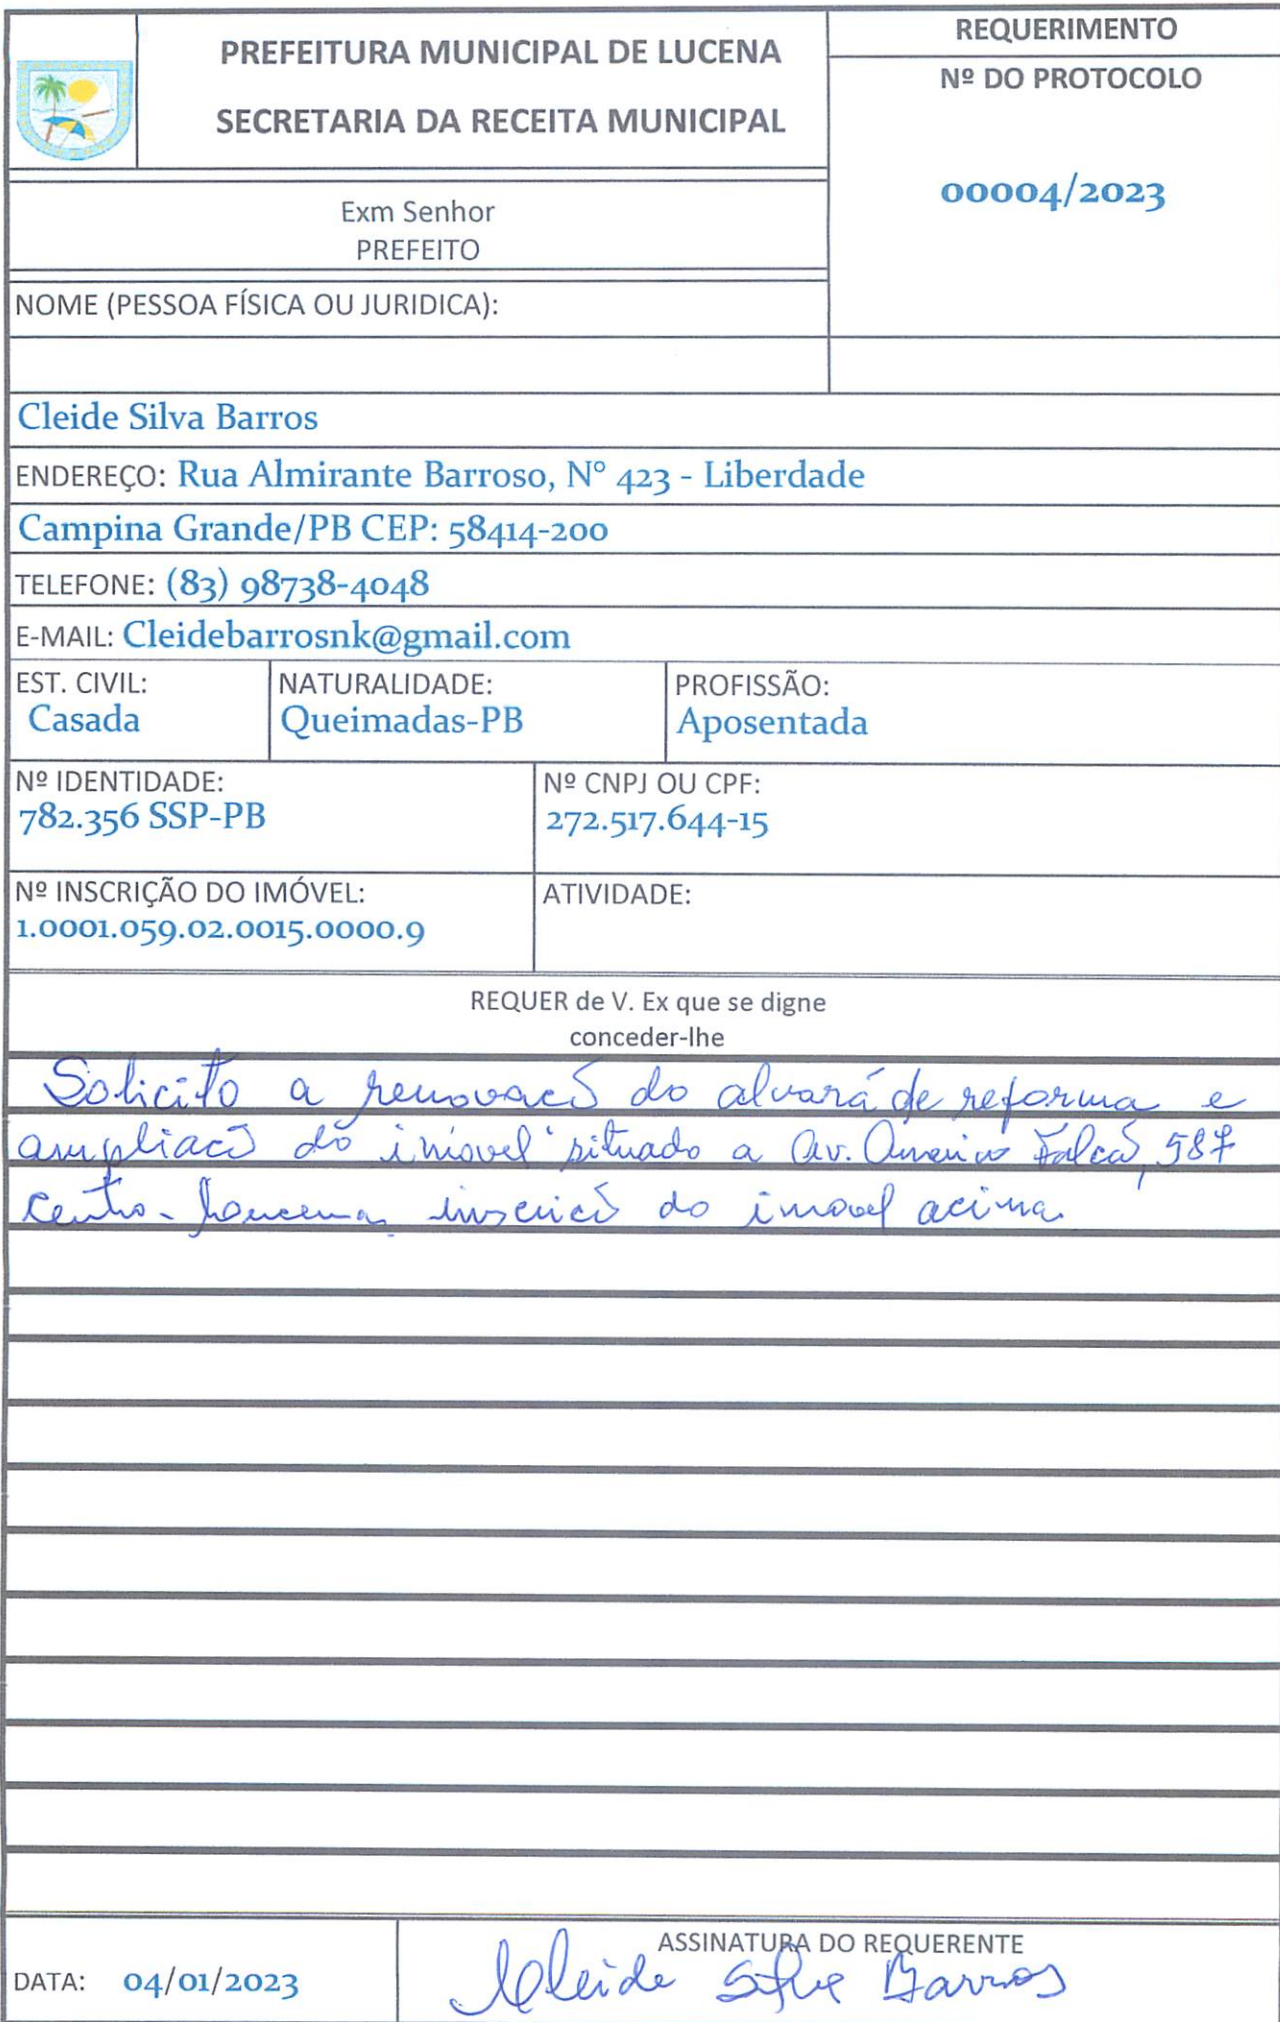 PREFEITURA MUNICIPAL DE LUCENA
SECRETARIA DA RECEITA MUNICIPAL
REQUERIMENTO
Nº DO PROTOCOLO
00004/2023
Exm Senhor
PREFEITO
NOME (PESSOA FÍSICA OU JURIDICA):
Cleide Silva Barros
ENDEREÇO: Rua Almirante Barroso, N° 423 - Liberdade
Campina Grande/PB CEP: 58414-200
TELEFONE: (83) 98738-4048
E-MAIL: Cleidebarrosnk@gmail.com
EST. CIVIL:
Casada
NATURALIDADE:
Queimadas-PB
PROFISSÃO:
Aposentada
Nº IDENTIDADE:
782.356 SSP-PB
Nº CNPJ OU CPF:
272.517.644-15
Nº INSCRIÇÃO DO IMÓVEL:
1.0001.059.02.0015.0000.9
ATIVIDADE:
REQUER de V. Ex que se digne
conceder-lhe
Solicito a renovacõ do alvará de reforma e
ampliacõ do imovel situado a Av. Americo Falcõ, 587
centro - Lucena, inscricõ do imovel acima.
DATA: 04/01/2023
ASSINATURA DO REQUERENTE
Cleide Silva Barros